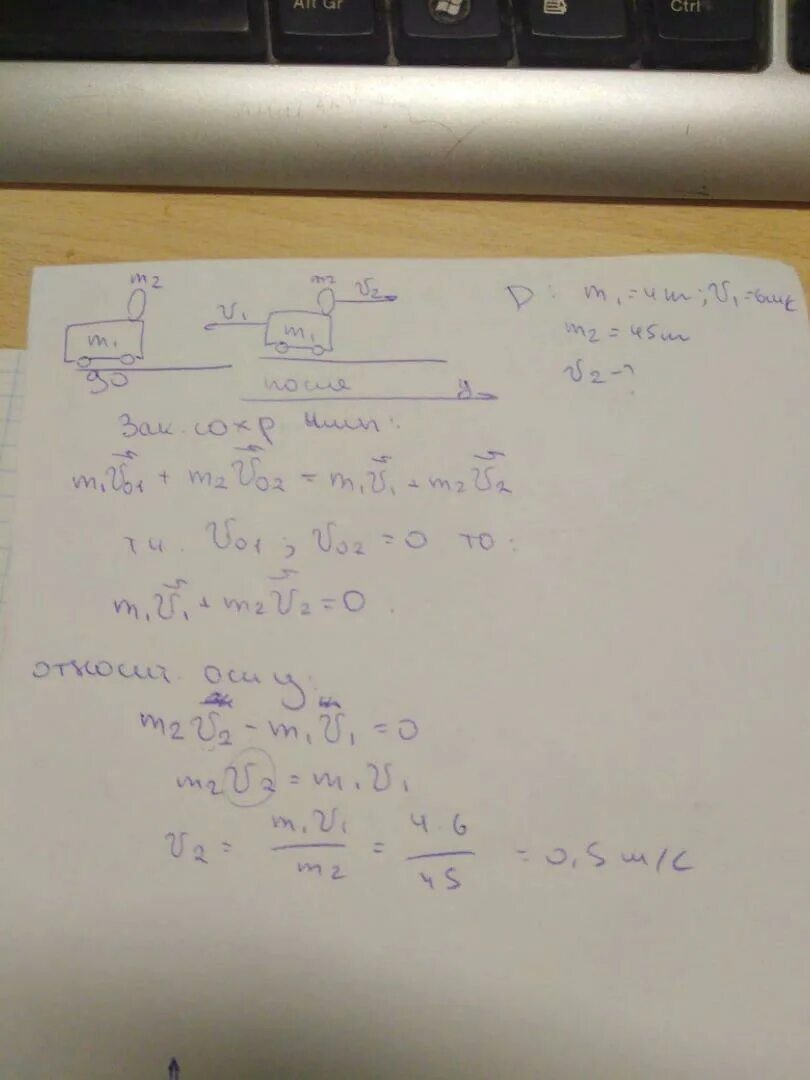 Alt Gr
Ctrl
m2
m1
до
v1
m2
v2
m1
после
y
D: m1 = 4 m; v1 = 6 m/c
m2 = 45 m
v2 - ?
Зак. сохр имп:
m1v⃗01 + m2v⃗02 = m1v⃗1 + m2v⃗2
т.к. v01; v02 = 0 то:
m1v⃗1 + m2v⃗2 = 0.
относит. оси y:
m2v2 - m1v1 = 0
m2v2 = m1v1
v2 = m1v1/m2 = 4·6/45 = 0,5 м/с